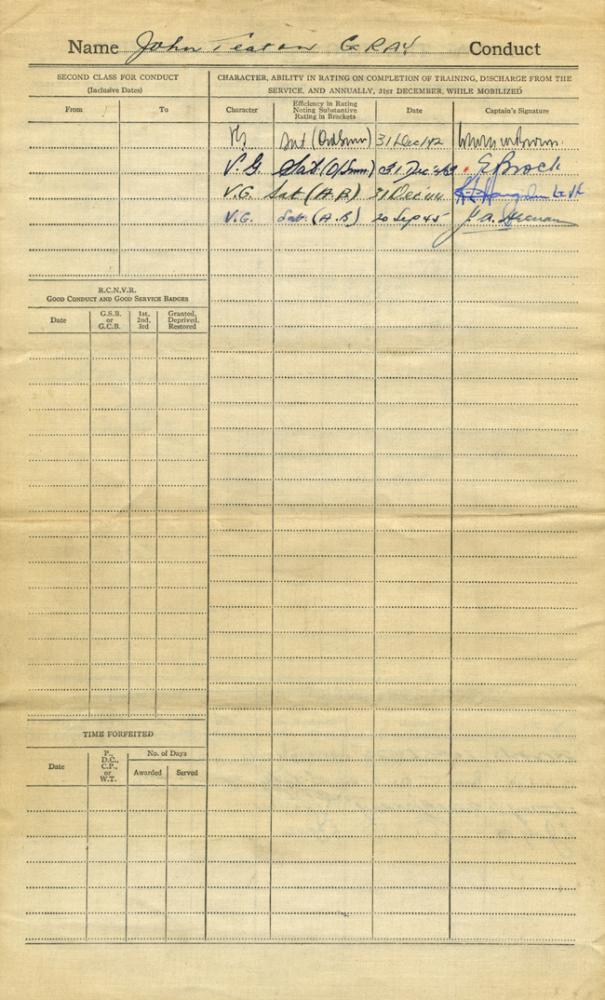 Name John GRAY Conduct
SECOND CLASS FOR CONDUCT
(Inclusive Dates)
From To
CHARACTER, ABILITY IN RATING ON COMPLETION OF TRAINING, DISCHARGE FROM THE
SERVICE, AND ANNUALLY, 31ST DECEMBER, WHILE MOBILIZED
Character
Efficiency in Rating
Noting Substantive
Rating in Brackets
Date
Captain's Signature
VG 31 Dec 42
V.G. Sat (O/Smn) 31 Dec 43 E Brock
V.G. Sat (A.B) 31 Dec 44
V.G. Sat. (A.B) 20 Sep 45
R.C.N.V.R.
GOOD CONDUCT AND GOOD SERVICE BADGES
Date
G.S.B.
or
G.C.B.
1st,
2nd,
3rd
Granted,
Deprived,
Restored
TIME FORFEITED
Date
P.,
D.C.,
C.P.,
or
W.T.
No. of Days
Awarded Served